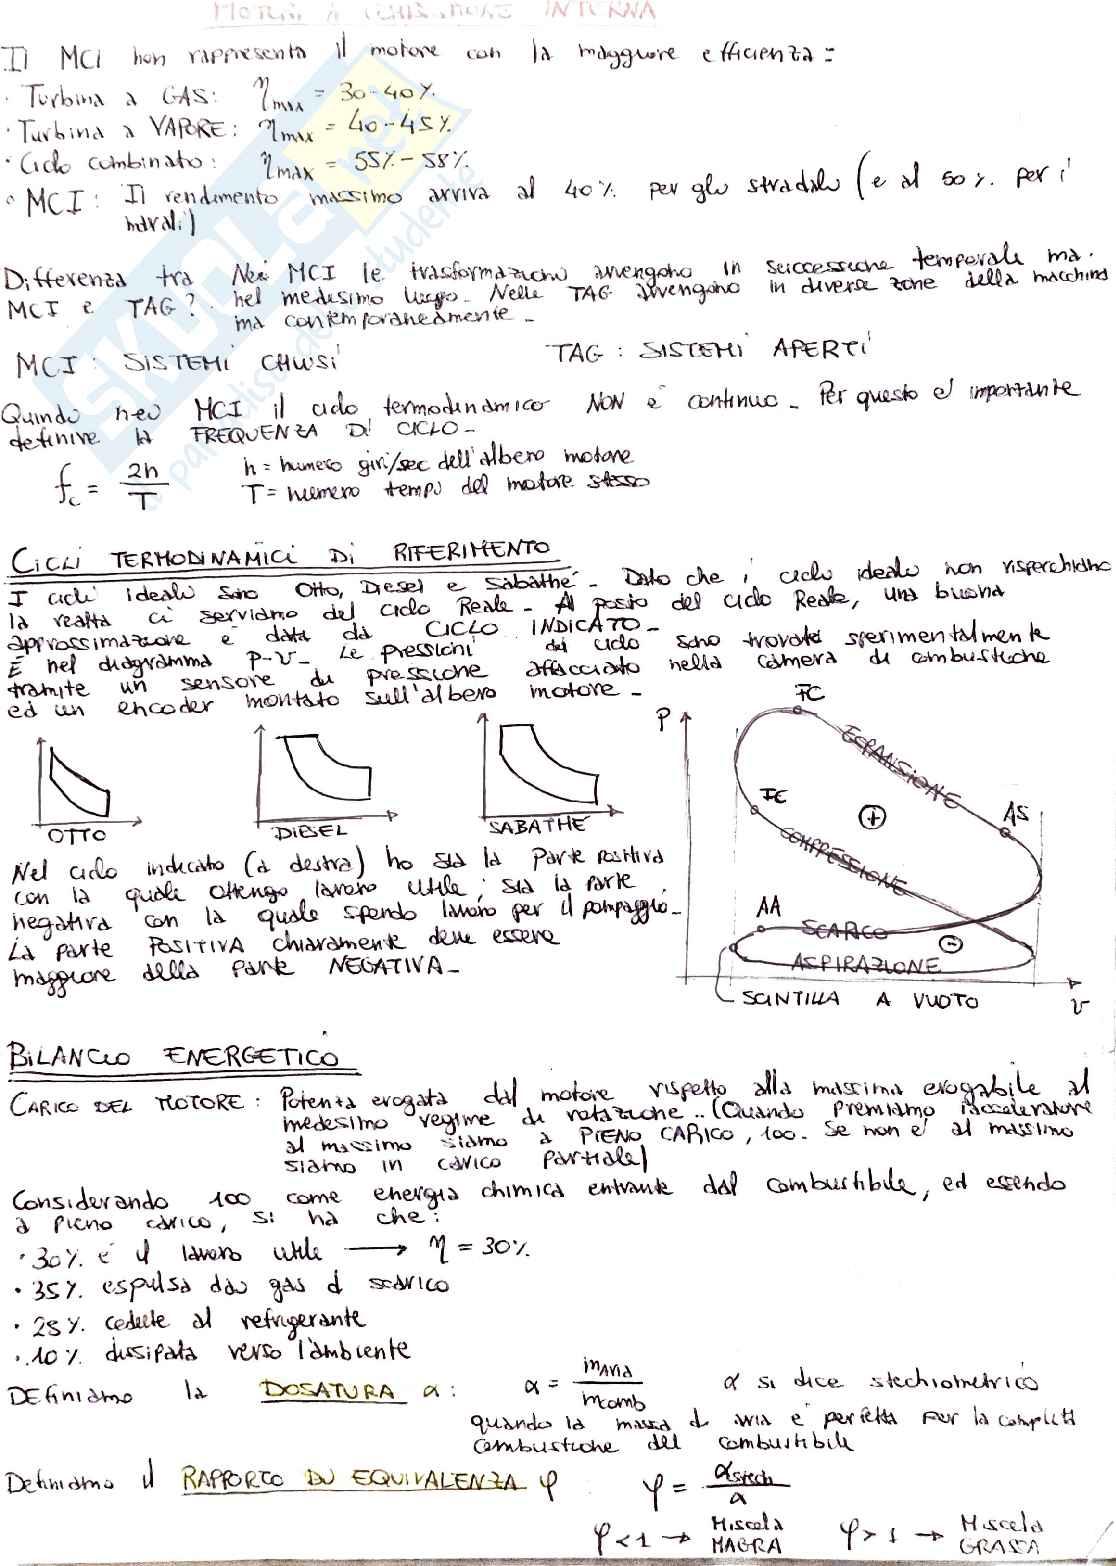 MOTORI A COMBUSTIONE INTERNA
Il MCI non rappresenta il motore con la maggiore efficienza:
· Turbina a GAS: ηmax = 30-40%
· Turbina a VAPORE: ηmax = 40-45%
· Ciclo combinato: ηmax = 55%-58%
· MCI: Il rendimento massimo arriva al 40% per gli stradali (e al 50% per i
navali)
Differenza tra Nei MCI le trasformazioni avvengono in successione temporale ma
MCI e TAG? nel medesimo luogo. Nelle TAG avvengono in diverse zone della macchina
ma contemporaneamente.
MCI: SISTEMI CHIUSI TAG: SISTEMI APERTI
Quindi nei MCI il ciclo termodinamico NON è continuo. Per questo è importante
definire la FREQUENZA DI CICLO.
fc = 2n / T n = numero giri/sec dell'albero motore
T = numero tempi del motore stesso
CICLI TERMODINAMICI DI RIFERIMENTO
I cicli ideali sono Otto, Diesel e Sabathé. Dato che i cicli ideali non rispecchiano
la realtà ci serviamo del Ciclo Reale. Al posto del Ciclo Reale, una buona
approssimazione è data da CICLO INDICATO.
È nel diagramma P-V. Le pressioni del ciclo sono trovate sperimentalmente
tramite un sensore di pressione affacciato nella camera di combustione
ed un encoder montato sull'albero motore.
OTTO DIESEL SABATHE
P FC ESPANSIONE IC + AS COMPRESSIONE AA SCARICO - ASPIRAZIONE V
SCINTILLA A VUOTO
Nel ciclo indicato (a destra) ho sia la parte positiva
con la quali ottengo lavoro utile, sia la parte
negativa con la quale spendo lavoro per il pompaggio.
La parte POSITIVA chiaramente deve essere
maggiore della parte NEGATIVA.
BILANCIO ENERGETICO
CARICO DEL MOTORE: Potenza erogata dal motore rispetto alla massima erogabile al
medesimo regime di rotazione.. (Quando premiamo l'acceleratore
al massimo siamo a PIENO CARICO, 100. Se non è al massimo
siamo in carico parziale)
Considerando 100 come energia chimica entrante dal combustibile, ed essendo
a pieno carico, si ha che:
· 30% è il lavoro utile → η = 30%
· 35% espulsa dai gas di scarico
· 25% cedute al refrigerante
· 10% dissipata verso l'ambiente
Definiamo la DOSATURA α: α = mAria / mcomb α si dice stechiometrico
quando la massa di aria è perfetta per la completa
combustione del combustibile
Definiamo il RAPPORTO DI EQUIVALENZA φ φ = αstech / α
φ<1 → Miscela MAGRA φ>1 → Miscela GRASSA